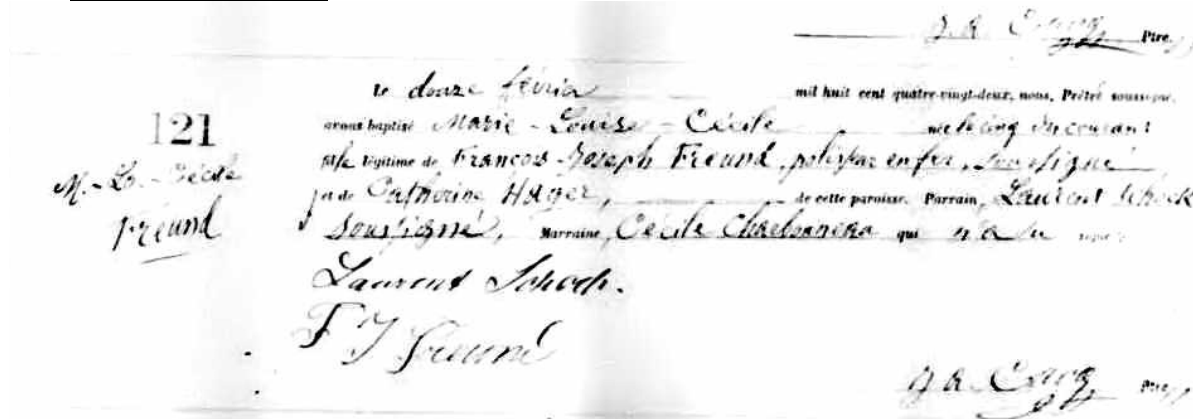 Ptre,
le douze février mil huit cent quatre-vingt-deux, nous, Prêtre soussigné,
121 avons baptisé Marie-Louise-Cécile née le cinq du courant
M.-L.-Cécile fille légitime de François-Joseph Freund, polisseur en fer, soussigné
Freund et de Catherine Hager, de cette paroisse. Parrain, Laurent Schock
soussigné, Marraine, Cécile Charbonneau qui n'a su signer
Laurent Schoch.
F J Freund
Ptre,